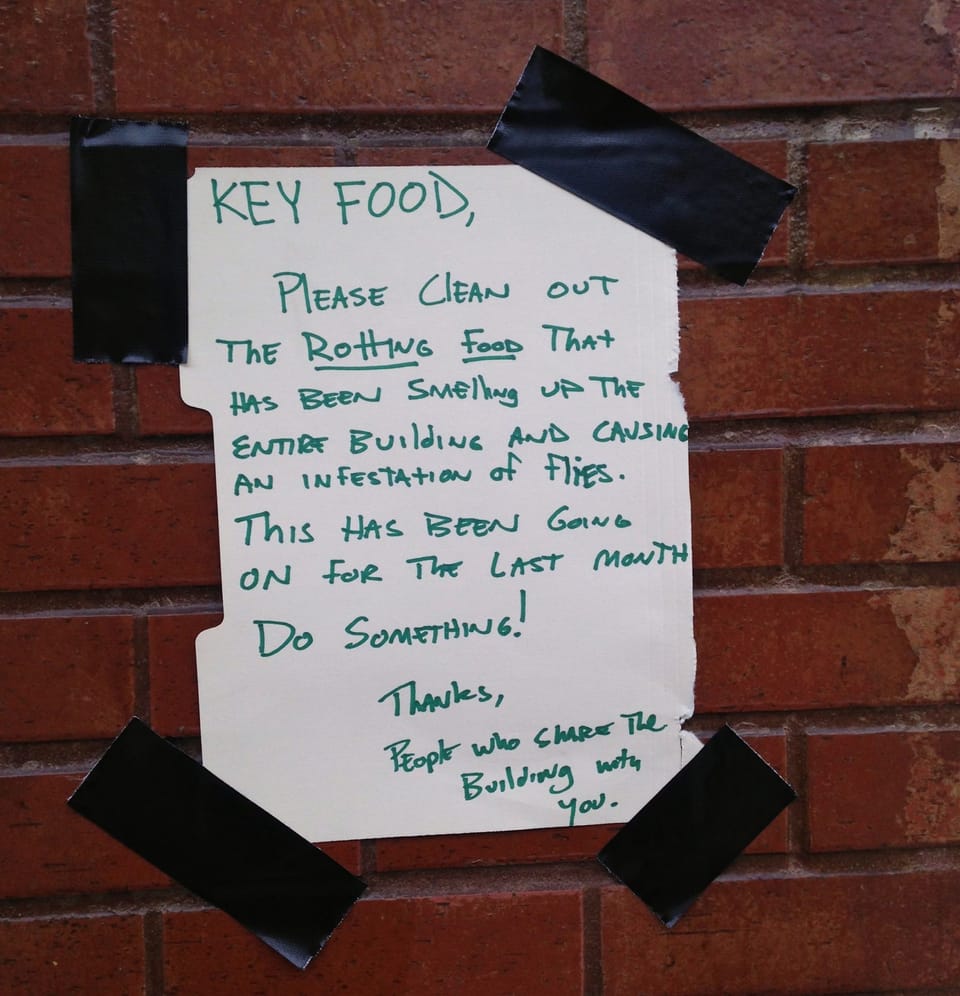 KEY FOOD,
PLEASE CLEAN OUT
THE ROTTING FOOD THAT
HAS BEEN SMELLING UP THE
ENTIRE BUILDING AND CAUSING
AN INFESTATION OF FLIES.
THIS HAS BEEN GOING
ON FOR THE LAST MONTH
DO SOMETHING!
THANKS,
PEOPLE WHO SHARE THE
BUILDING WITH
YOU.